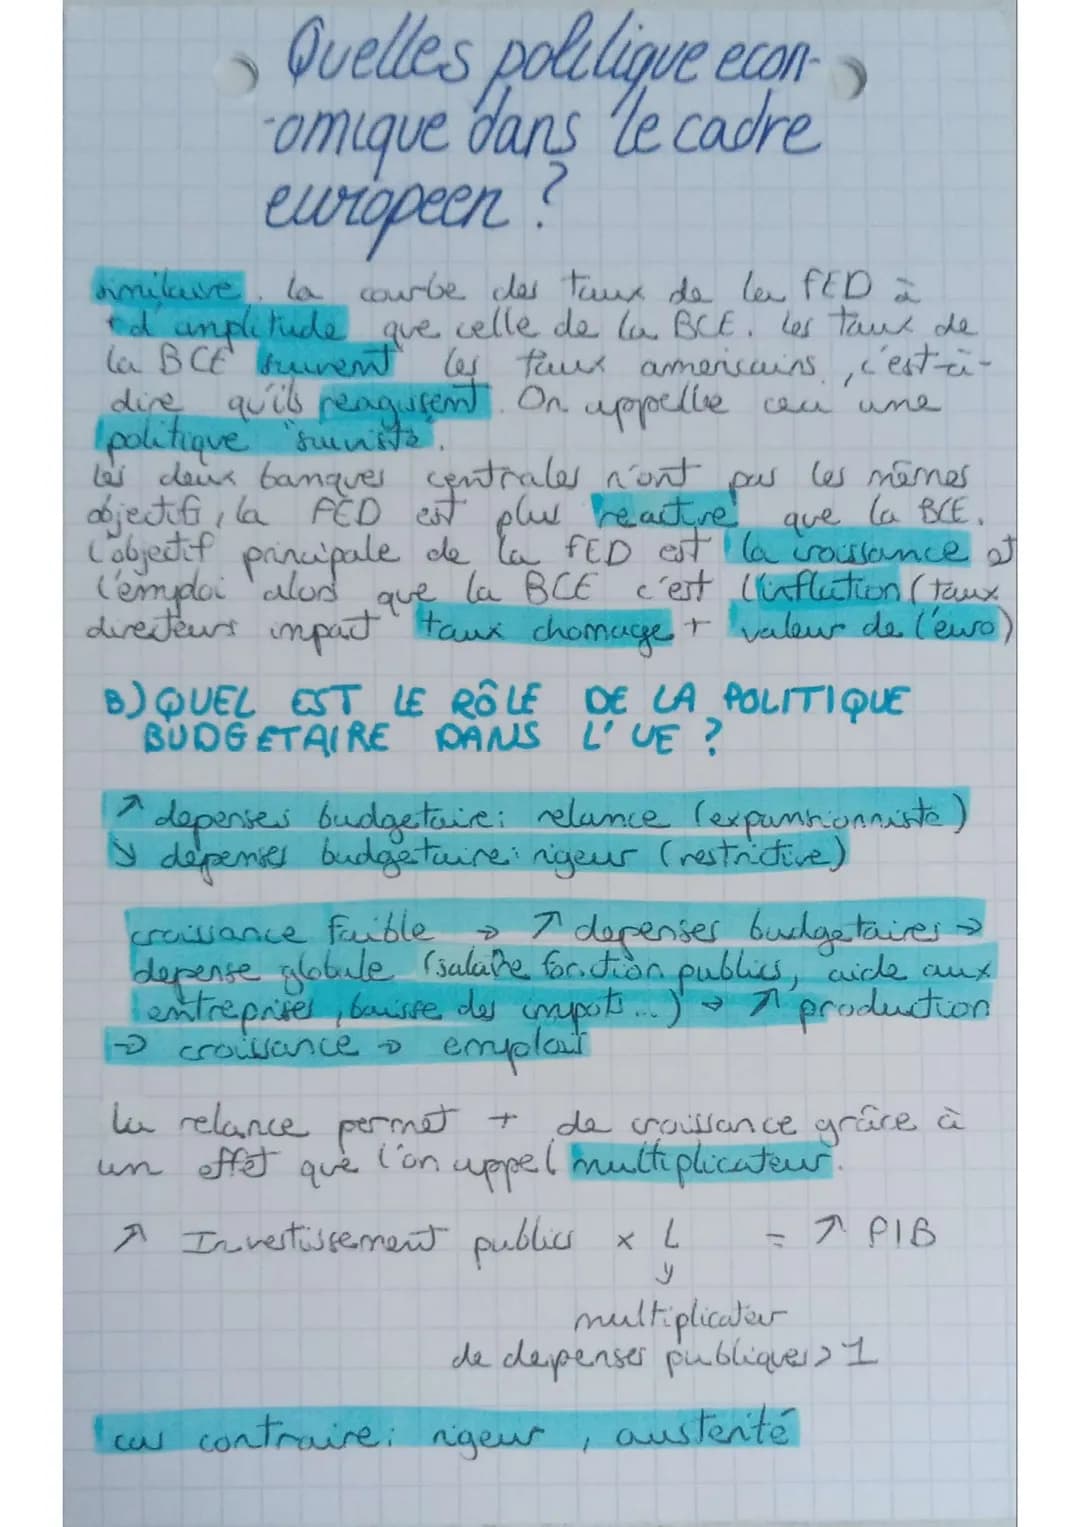 Quelles politique econ-
-omique dans le cadre
européen ?
similaire, la courbe des taux de la FED à
+ d'amplitude que celle de la BCE. Les taux de
la BCE suivent les taux americains, c'est-à-
dire qu'ils reagissent. On appelle ceci une
politique "suiviste".
Les deux banques centrales n'ont pas les mêmes
objectifs, la FED est plus reactive que la BCE.
L'objectif principale de la FED est la croissance et
l'emploi alors que la BCE c'est l'inflation (taux
directeurs impact taux chomage + valeur de l'euro)
B) QUEL EST LE RÔLE DE LA POLITIQUE
BUDGETAIRE DANS L'UE ?
↗ depenses budgetaire: relance (expansionniste)
↘ depenses budgetaire: rigeur (restrictive)
croissance faible → ↗ depenses budgetaires →
depense globale (salaire fonction publics, aide aux
entreprises, baisse des impots...) → ↗ production
→ croissance → emploi
La relance permet + de croissance grâce à
un effet que l'on appel multiplicateur.
↗ Investissement publics x L = ↗ PIB
multiplicateur
de depenses publiques > 1
cas contraire: rigeur, austerité